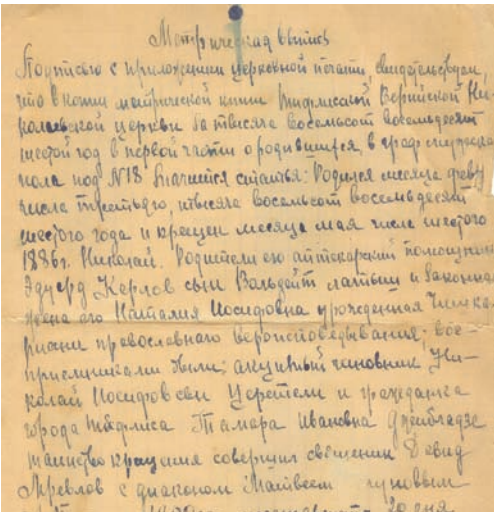 Метрическая выпись
Подписью с приложении церковной печати, свидетельствуем,
что в копии метрической книги Тифлисской Ворийской Ни-
колаевской церкви за тысяча восемьсот восемьдесят
шестой год в первой части о родившихся, в граф мужеска
пола под №18 значится статья: Родился месяца февр
числа третьяго, тысяча восемьсот восемьдесят
шестого года и крещен месяца мая числа шестого
1886г. Николай. Родители его аптекарский помощник
Эдуард Керлов сын Вольдейт латыш и законная
жена его Наталия Иосифовна урожденная
православного вероисповедывания; вос
приемниками были: акцизный чиновник Ни-
колай Иосифов сын Церетели и гражданка
города Тифлиса Тамара Ивановна
таинство крещения совершил священик Давид
с диаконом Матвеем
20 дня